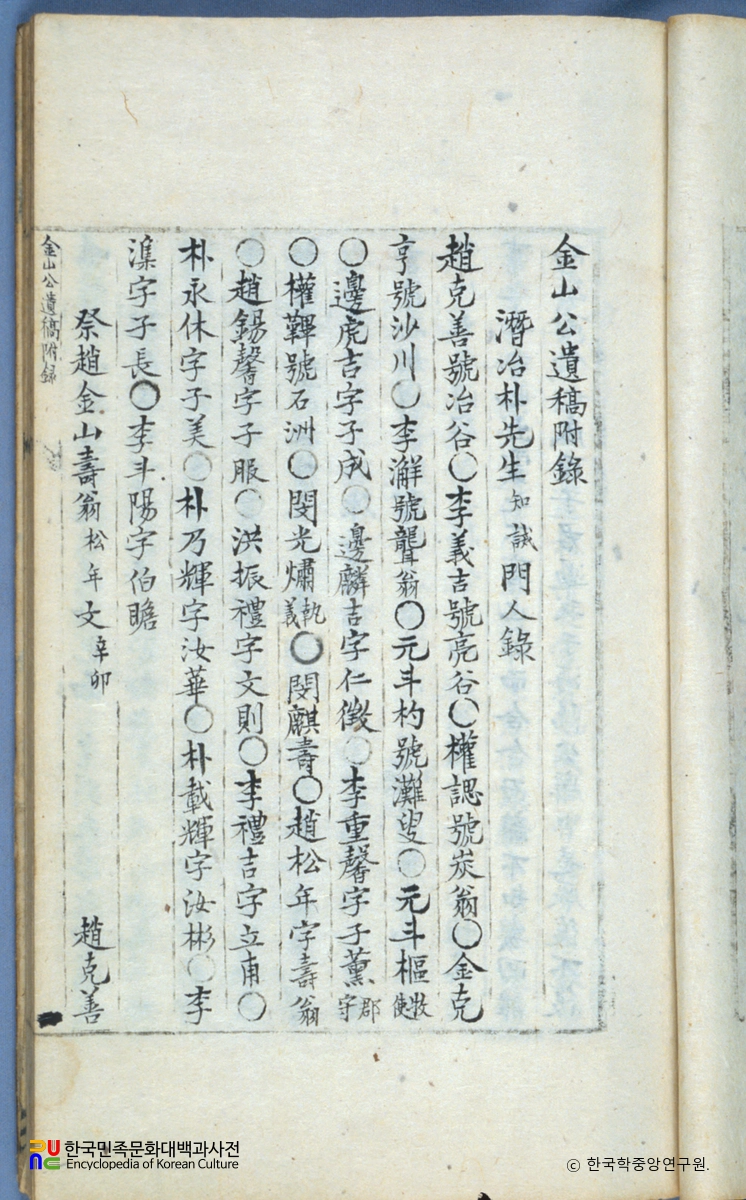 金山公遺稿附錄
潛冶朴先生知誡門人錄
趙克善號冶谷〇李義吉號亮谷〇權諰號炭翁〇金克
亨號沙川〇李澥號聾翁〇元斗杓號灘叟〇元斗樞牧使
〇邊虎吉字子成〇邊麟吉字仁徵〇李重馨字子薰郡守
〇權韠號石洲〇閔光熽執義〇閔麒壽〇趙松年字壽翁
〇趙錫馨字子服〇洪振禮字文則〇李禮吉字立甫〇
朴永休字子美〇朴乃輝字汝華〇朴載輝字汝彬〇李
潗字子長〇李斗陽字伯瞻
祭趙金山壽翁松年文辛卯 趙克善
金山公遺稿附録
한국민족문화대백과사전
Encyclopedia of Korean Culture
© 한국학중앙연구원.